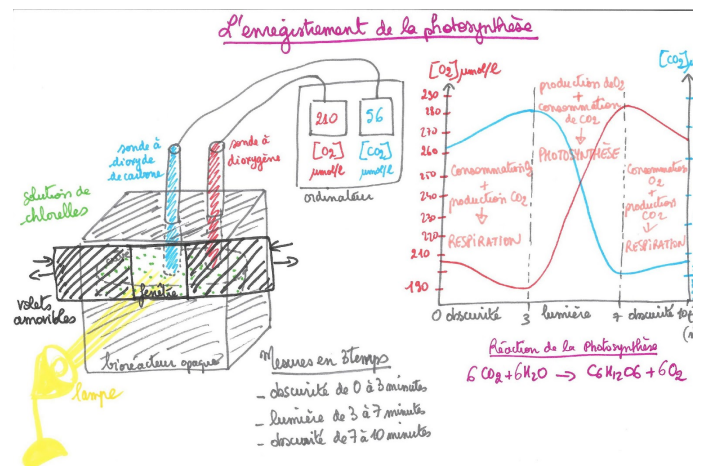 L'enregistrement de la photosynthèse
sonde à
dioxyde
de carbone
sonde à
dioxygène
210
56
[O2]
µmol/l
[CO2]
µmol/l
ordinateur
solution de
chlorelles
fenêtre
volets
amovibles
bioréacteur opaque
lampe
Mesures en 3 temps
- obscurité de 0 à 3 minutes
- lumière de 3 à 7 minutes
- obscurité de 7 à 10 minutes
[O2] µmol/l
[CO2]
290
280
270
260
250
240
230
220
210
190
consommation O2
+
production CO2
RESPIRATION
production de O2
+
consommation
de CO2
PHOTOSYNTHÈSE
consommation
O2
+
production
CO2
RESPIRATION
0 obscurité 3 lumière 7 obscurité 10
Réaction de la Photosynthèse
6CO2+6H2O → C6H12O6+6O2